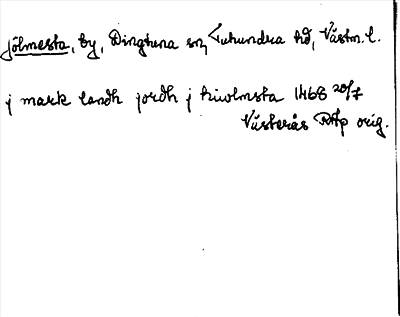 Jölmesta, by, Dingtuna sn, Tuhundra hd, Västm. l.
j mark landh jordh j hiwlmsta 1468 20/7
Västerås RAp orig.